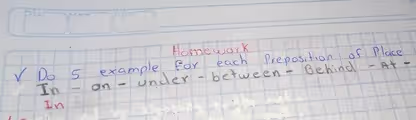 Homework
√ Do 5 example for each Preposition of Place
In - on - under - between - Behind - At -
In